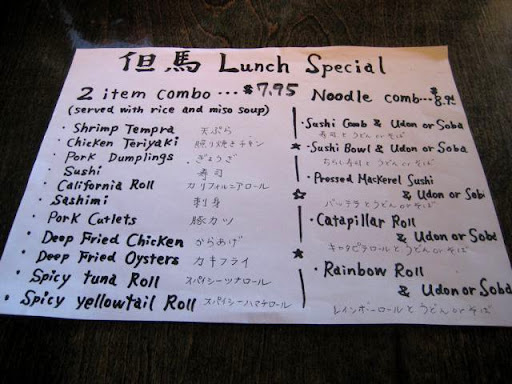 但馬 Lunch Special
2 item combo ... $7.95
(served with rice and miso soup)
・Shrimp Tempra 天ぷら
・Chicken Teriyaki 照り焼きチキン
・Pork Dumplings ぎょうざ
・Sushi 寿司
・California Roll カリフォルニアロール
・Sashimi 刺身
・Pork Cutlets 豚カツ
・Deep Fried Chicken からあげ
・Deep Fried Oysters カキフライ
・Spicy tuna Roll スパイシーツナロール
・Spicy yellowtail Roll スパイシーハマチロール
Noodle comb...$8.95
・Sushi Comb & Udon or Soba
寿司とうどん or そば
・Sushi Bowl & Udon or Soba
ちらし寿司とうどん or そば
・Pressed Mackerel Sushi
& Udon or Soba
バッテラとうどん or そば
・Catapillar Roll
& Udon or Soba
キャタピラロールとうどん or そば
・Rainbow Roll
& Udon or Soba
レインボーロールとうどん or そば